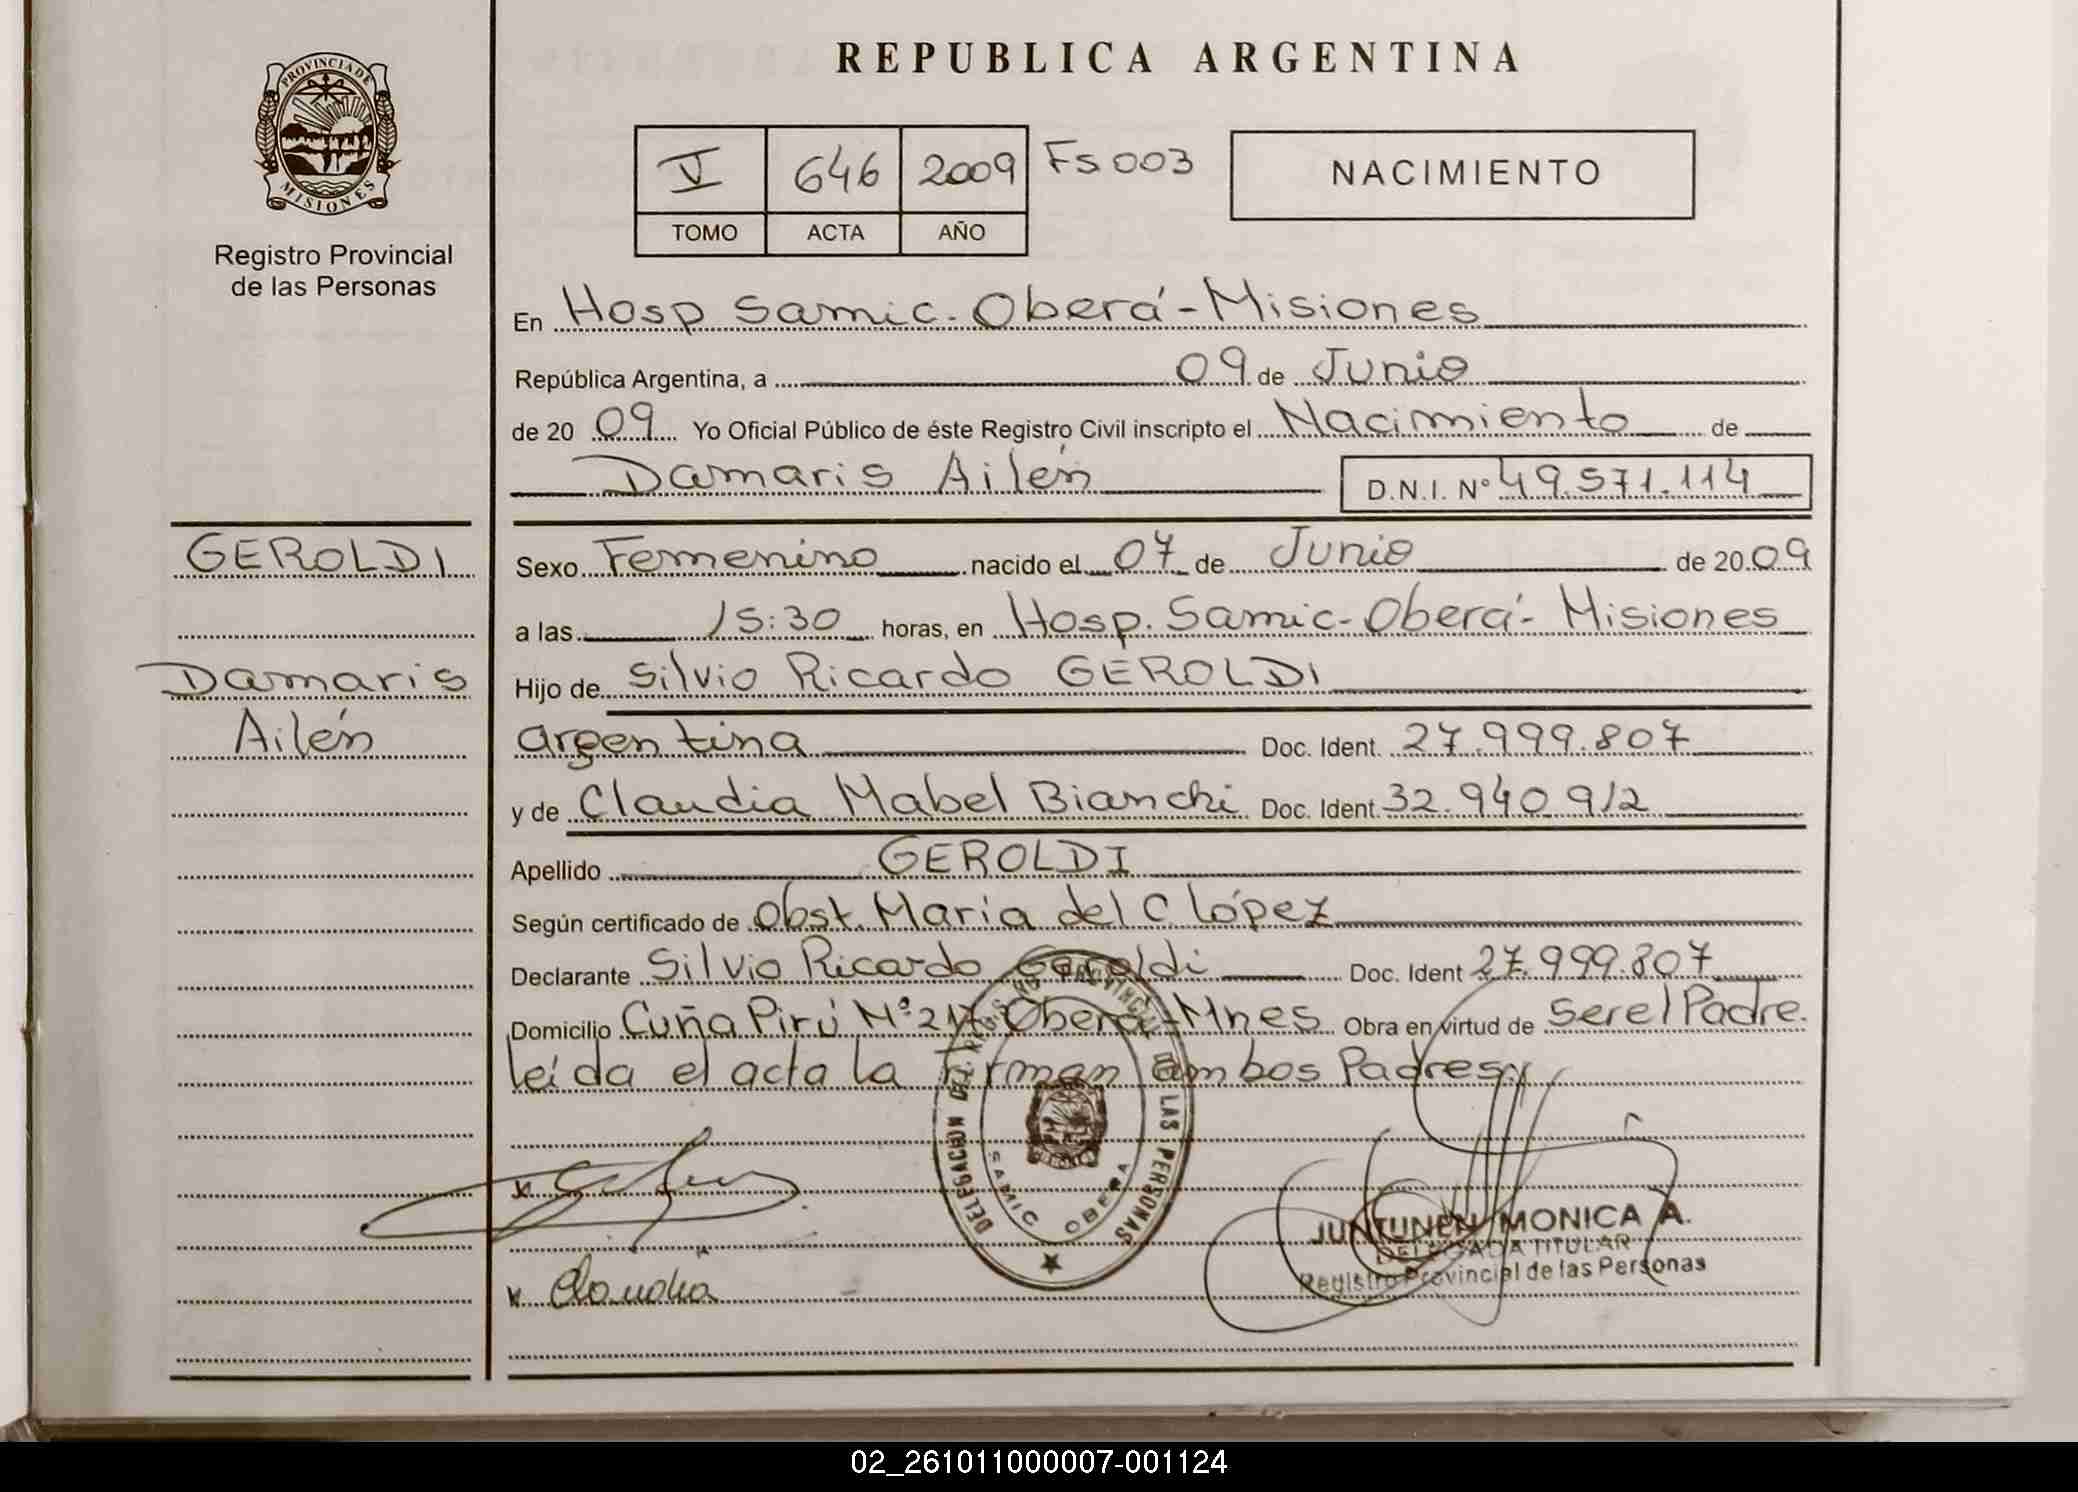 PROVINCIA DE
MISIONES
Registro Provincial
de las Personas
REPUBLICA ARGENTINA
V 646 2009 Fs 003
TOMO ACTA AÑO
NACIMIENTO
En Hosp Samic. Oberá - Misiones
República Argentina, a 09 de Junio
de 20 09 Yo Oficial Público de éste Registro Civil inscripto el Nacimiento de
Damaris Ailén D.N.I. N° 49.571.114
GEROLDI
Damaris
Ailén
Sexo Femenino nacido el 07 de Junio de 20 09
a las 15:30 horas, en Hosp. Samic - Oberá - Misiones
Hijo de Silvio Ricardo GEROLDI
argentina Doc. Ident. 27.999.807
y de Claudia Mabel Bianchi Doc. Ident. 32.940.912
Apellido GEROLDI
Según certificado de Obst. María del C. López
Declarante Silvio Ricardo Geroldi Doc. Ident 27.999.807
Domicilio Cuña Pirú N° 217 Oberá - Mnes Obra en virtud de Ser el Padre.
leída el acta la Firman ambos Padres
DELEGACION DEL REGISTRO PROVINCIAL DE LAS PERSONAS
SAMIC OBERA
x
x Claudia
JUNTUNEN MONICA A.
DELEGADA TITULAR
Registro Provincial de las Personas
02_261011000007-001124